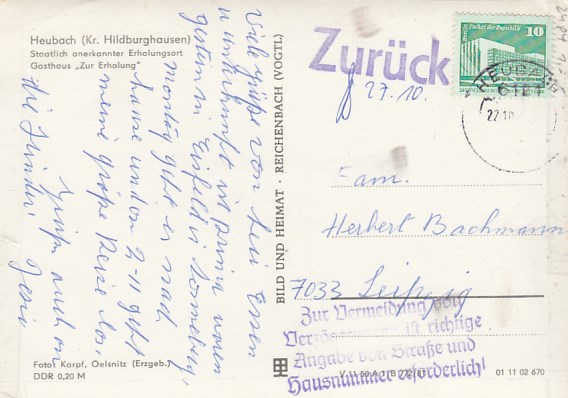 Heubach (Kr. Hildburghausen)
Staatlich anerkannter Erholungsort
Gasthaus „Zur Erholung"
Viele Grüße von hier Essen
u. Unterkunft ist prima waren
gestern in Eisfeld u. Sonneberg,
Montag geht es nach
hause und am 2-11 geht
meine große Reise los.
Grüße auch an
die Kinder.
Fotot Karpf, Oelsnitz (Erzgeb.)
DDR 0,20 M
BILD UND HEIMAT · REICHENBACH (VOGTL)
Zurück
27.10.
10
HEUBACH
6111
22.10
Fam.
Herbert Bachmann
7033 Leipzig
Zur Vermeidung von
Verzögerungen ist richtige
Angabe von Straße und
Hausnummer erforderlich!
01 11 02 670